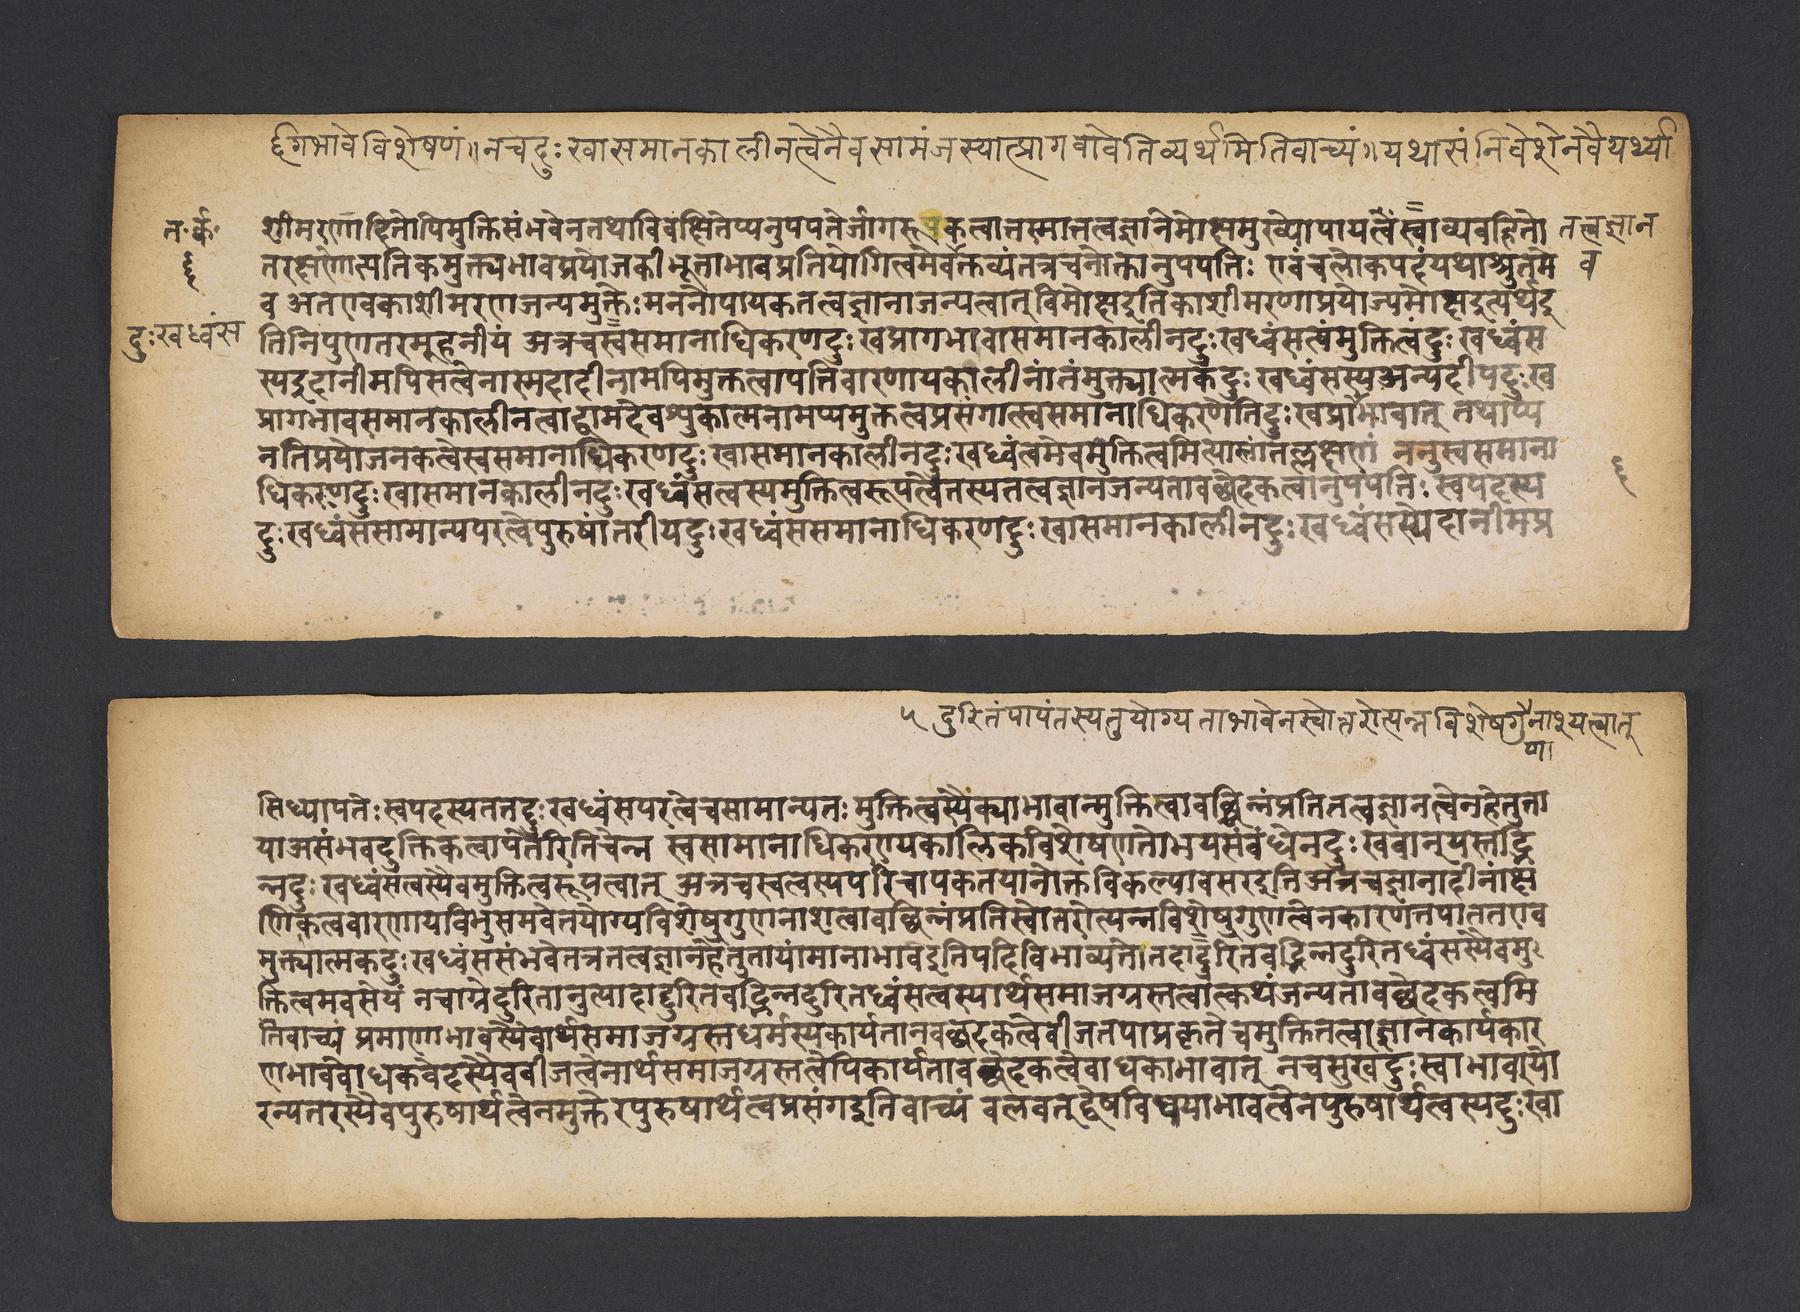 र्द्दगिभावे विशेषणं॥ नच्चदुःखासमानकालीनत्वेनैव सामंजस्यात्प्रागवोवेति व्यर्थमितिवाच्यं॥ यथासंनिवेशेनवैयर्थ्या
त॰र्क॰
शीमरणादितोपिमुक्तिसंभवेनतथाविवक्षितेप्यनुपपत्तेर्जागरूककत्वात्तस्मात्तत्वज्ञानेमोक्षमुख्योपायत्वेस्वाव्यवहितो
तत्वज्ञान
६
तरक्षणोत्पत्तिकमुक्त्यभावप्रयोजकीभूताभावप्रतियोगित्वमेवक्तव्यंतत्रचनोक्तानुपपत्तिः एवंचलोकपदंयथाश्रुतम
व
व अतएवकाशीमरणजन्यमुक्तेःमननोपायकतत्वज्ञानाजन्यत्वात् विमोक्षइतिकाशीमरणाप्रयोज्यमोक्षइत्यर्थइ
दुःखध्वंस
तिनिपुणतरमूहनीयं अत्रचस्वसमानाधिकरणदुःखप्रागभावासमानकालीनदुःखध्वंसत्वंमुक्तित्वंदुःखध्वंस
स्यइदानीमपिसत्वेनास्मदादीनामपिमुक्तत्वापत्तिवारणायकालीनांतंमुक्त्यात्मकदुःखध्वंसस्यअन्यदीयदुःख
प्रागभावसमानकालीनत्वाद्वामदेवश्युकात्मनामप्यमुक्तत्वप्रसंगात्स्वसमानाधिकरणेतिदुःखप्रागभावात् तथाप्य
नतिप्रयोजनकत्वेस्वसमानाधिकरणदुःखासमानकालीनदुःखध्वंत्वमेवमुक्तित्वमित्यास्तांतल्लक्षणं ननुस्वसमाना
६
धिकरणदुःखासमानकालीनदुःखध्वंसत्वस्यमुक्तित्वरूपत्वेतस्यतत्वज्ञानजन्यतावछेदकत्वानुपपत्तिः स्वपदस्य
दुःखध्वंससामान्यपरत्वेपुरुषांतरीयदुःखध्वंससमानाधिकरणदुःखासमानकालीनदुःखध्वंसस्येदानीमप्र
५ दुरितंपापंतस्यतुयोग्यताभावेनस्वोत्तरोत्पन्नविशेषगुनाश्यत्वात्
णा
सिध्यापतेः स्वपदस्यतत्तदुःखध्वंसपरत्वेचसामान्यतः मुक्तित्वस्यैक्याभावान्मुक्तित्वावछिन्नंप्रतितत्वज्ञानत्वेनहेतुता
याअसंभवदुक्तिकत्वापत्तेरितिचेन्न स्वसामानाधिकरण्यकालिकविशेषणतोभयसंबंधेनदुःखवान्यस्तद्भि
न्नदुःखध्वंसत्वस्यैवमुक्तित्वरूपत्वात् अत्रचस्वत्वस्यपरिचापकतयानोक्तविकल्पावसरइति अत्रचज्ञानादीनांक्ष
णिकत्ववारणायविभुसमवेतयोग्यविशेषुगुणनाशत्वावछिन्नंप्रतिस्वोत्तरोत्पन्नविशेषुगुणत्वेनकारणंनपाततएव
मुक्त्यात्मकदुःखध्वंससंभवेतत्रतत्वज्ञानहेतुतायांमानाभावइतियदिविभाव्यतेतदादुरितवद्भिन्नदुरितध्वंसस्यैवमु॰
क्तित्वमवसेयं नचाग्रेदुरितानुत्पादाद्दुरितवद्भिन्नदुरितध्वंसत्वस्यार्थसमाजग्रस्तत्वात्कथंजन्यतावछेदकत्वमि
तिवाच्यं प्रमाणाभावस्यैवार्थसमाजग्रस्तधर्मस्यकार्यतानवछेदकत्वेवीजतयाप्रकृतेचमुक्तितत्वाज्ञानकार्यकार
णभावेबाधकवेदस्यैवबीजत्वेनार्थसमाजग्रस्तत्वेपिकार्यतावछेदकत्वेबाधकाभावात् नचसुखदुःखाभावायो
रन्यतरस्यैवपुरुषार्थत्वेनमुक्तेरपुरुषार्थत्वप्रसंगइतिवाच्यं बलवत्द्वेषविषयाभावत्वेनपुरुषार्थत्वस्यदुःखा